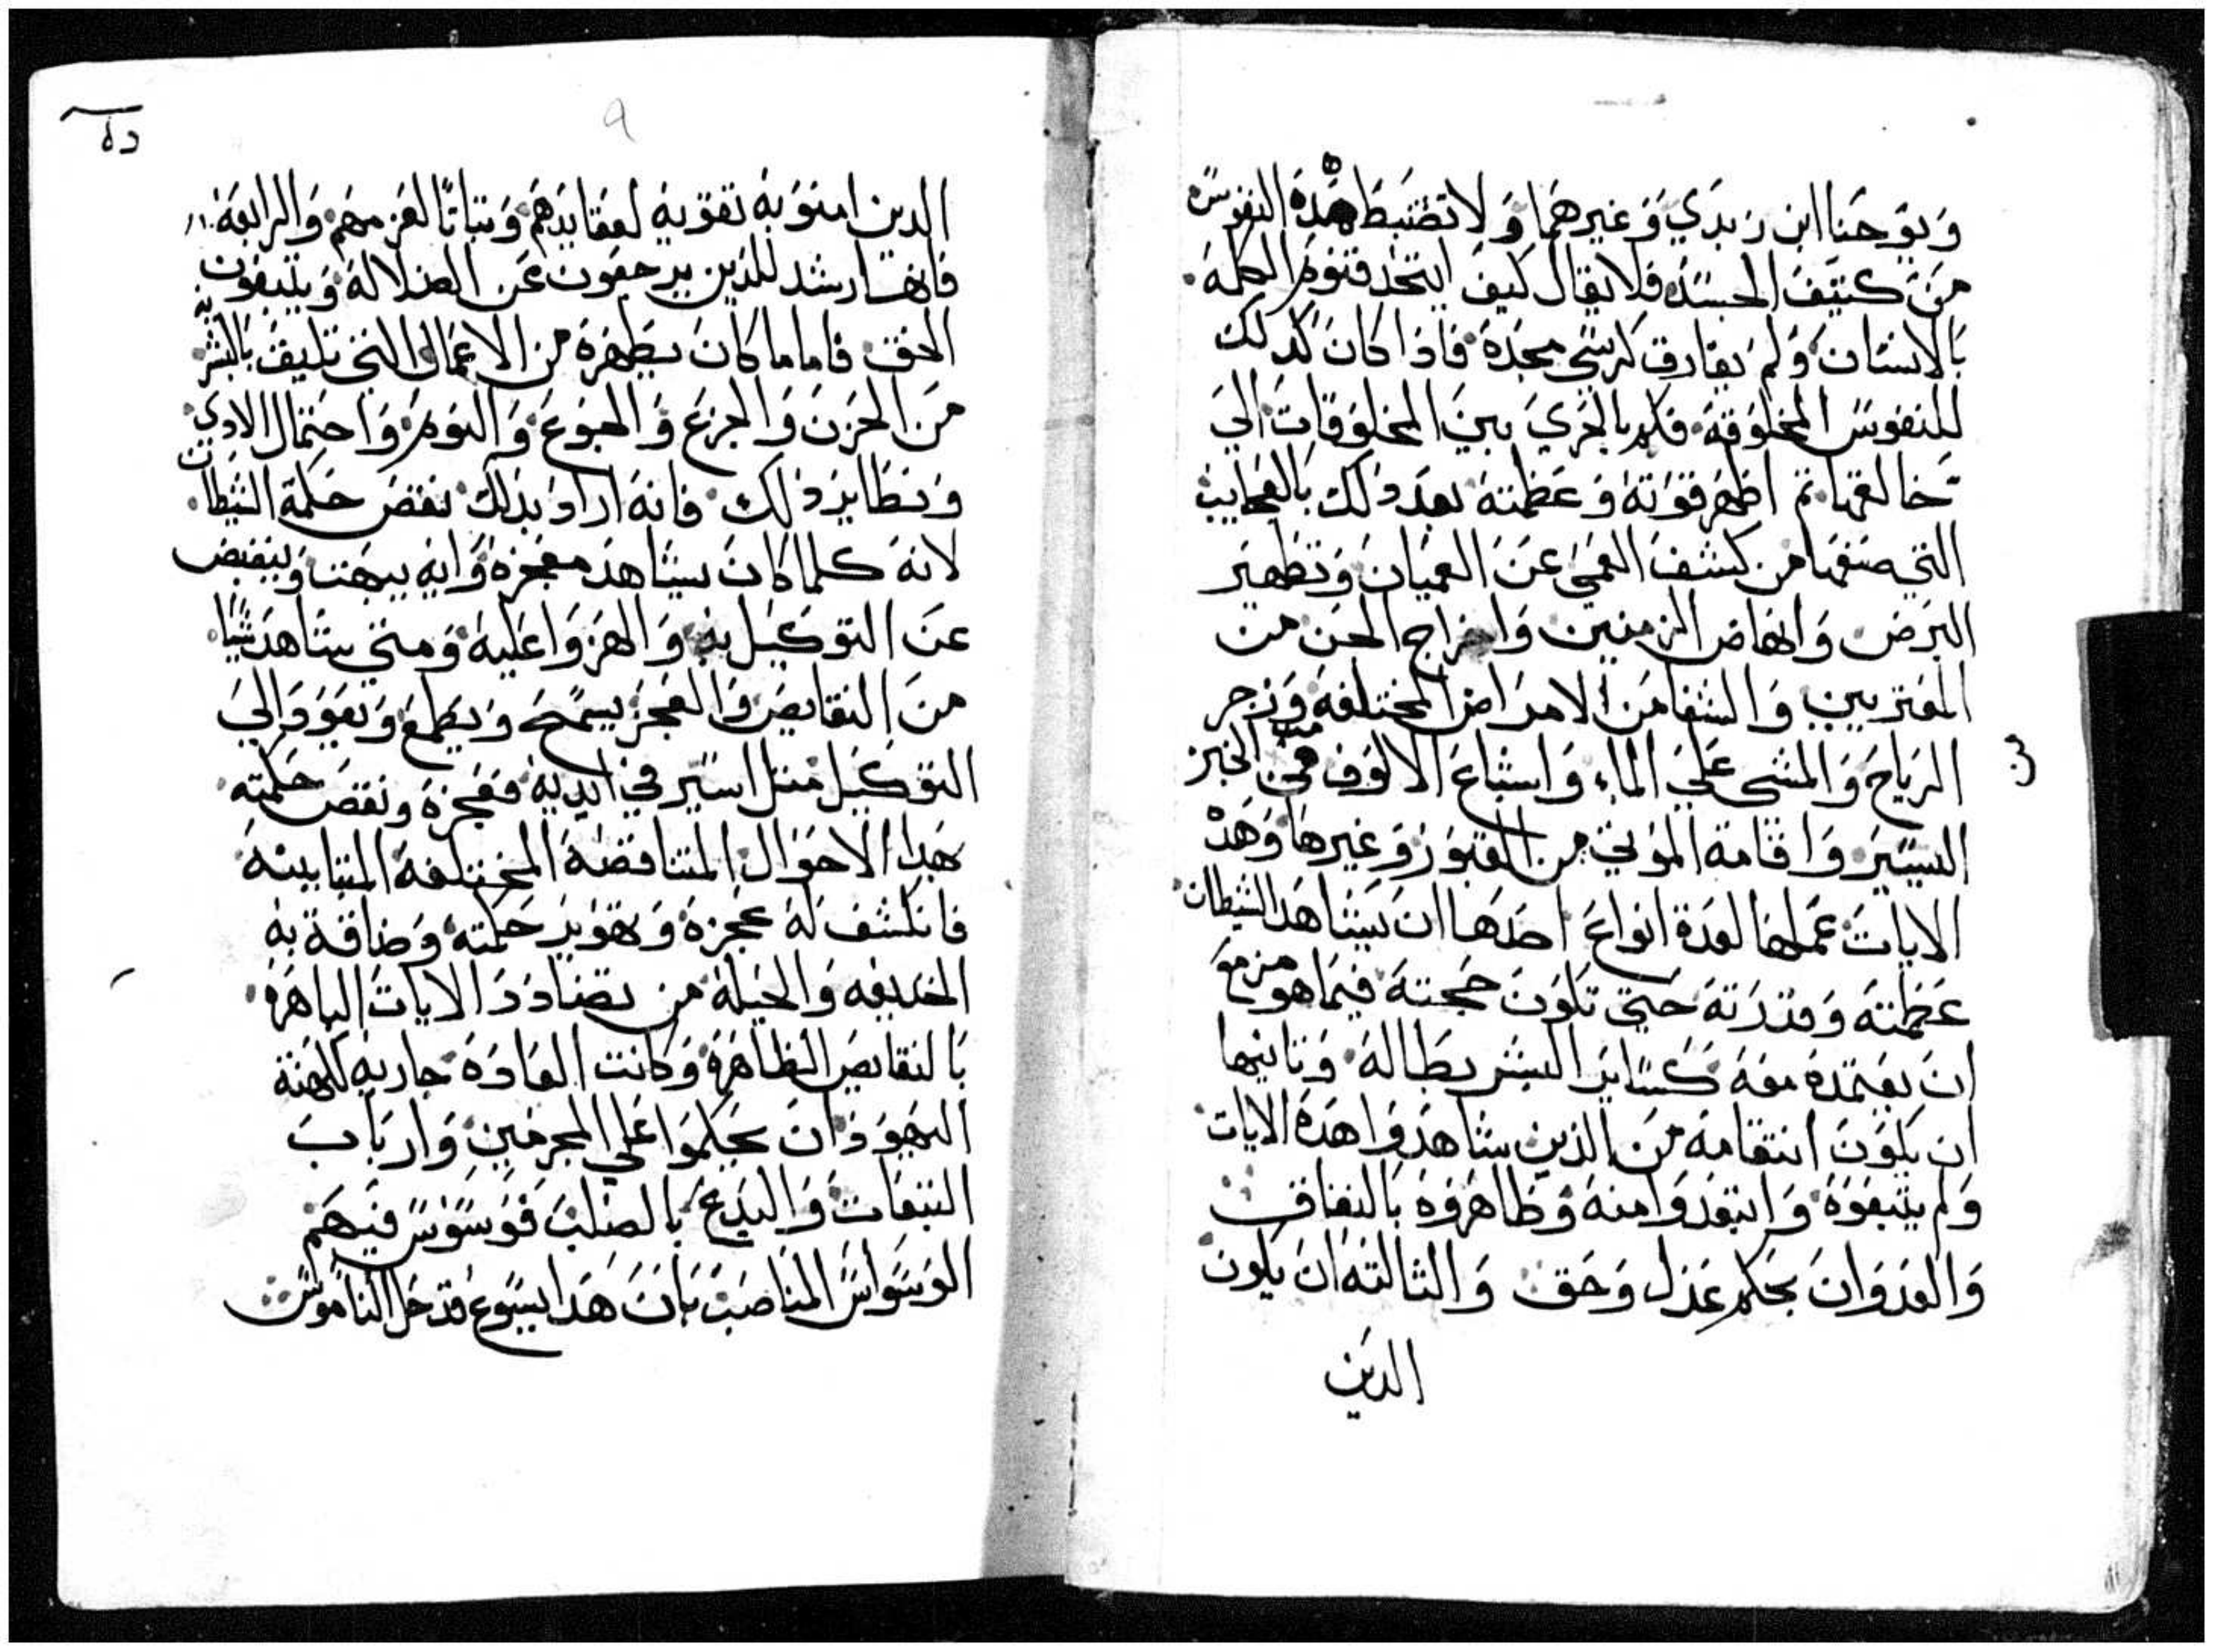 ويوحنا ابن زبدي وغيرهما ولا تضبط هذه النفوس
من كثيف الجسد فلا يقال كيف اتحد قنوم الكلمة
بالانسان ولم يفارق كرسي مجده فاذا كان كذلك
للنفوس المخلوقة فكم بالحري بين المخلوقات الي
خالقها ثم اظهر قوته وعظمته بعد ذلك بالعجايب
التي صنعها من كشف العمي عن العميان وتطهير
البرص وانهاض الزمنين واخراج الجن من
المعتريين والشفا من الامراض المختلفة وزجر
الرياح والمشي علي الماء واشباع الالوف من الخبز
اليسير واقامة الموتي من القبور وغيرها وهذه
الايات عملها لعدة انواع احدها ان يشاهد الشيطان
عظمته وقدرته حتي تكون حجته فيما هو مزمع
ان يعتمده معه كساير البشر بطالة وثانيها
ان يكون انتقامه من الذين شاهدوا هذه الايات
ولم يتبعوه وابتعدوا منه وظاهروه بالنفاق
والعدوان بحكم عدل وحق والثالثة ان يكون
الدين
دة
9
الدين امنو به تقويه لعقايدهم وثباتا لعزمهم والرابعة
فانها رشد للذين يرجعون عن الضلالة ويتبعون
الحق فاما ما كان يظهره من الاعمال التي تليق بالبشرية
من الحزن والجزع والجوع والنوم واحتمال الادي
ونظاير ذلك فانه اراد بذلك نقض حكمة الشيطان
لانه كلما كان يشاهد معجزة واية يبهت وينقبض
عن التوكيل به والهزوا عليه ومتي شاهد شيا
من النقايص والعجز يسمح ويطمع ويعود الي
التوكيل مثل اسير في ايديه فعجزه ونقض حكمته
بهدا الاحوال المتناقضة المختلفة المتباينه
فانكشف له عجزه وتقويد حكمته وضاقة به
الخديعه والحيلة من تضادد الايات الباهرة
بالنقايص الظاهرة وكانت العادة جاريه لكهنة
اليهود ان يحكموا علي المجرمين وارباب
التبعات والبدع بالصلب فوسوس فيهم
الوسواس المناصب بان هدا يسوع قد حل الناموس